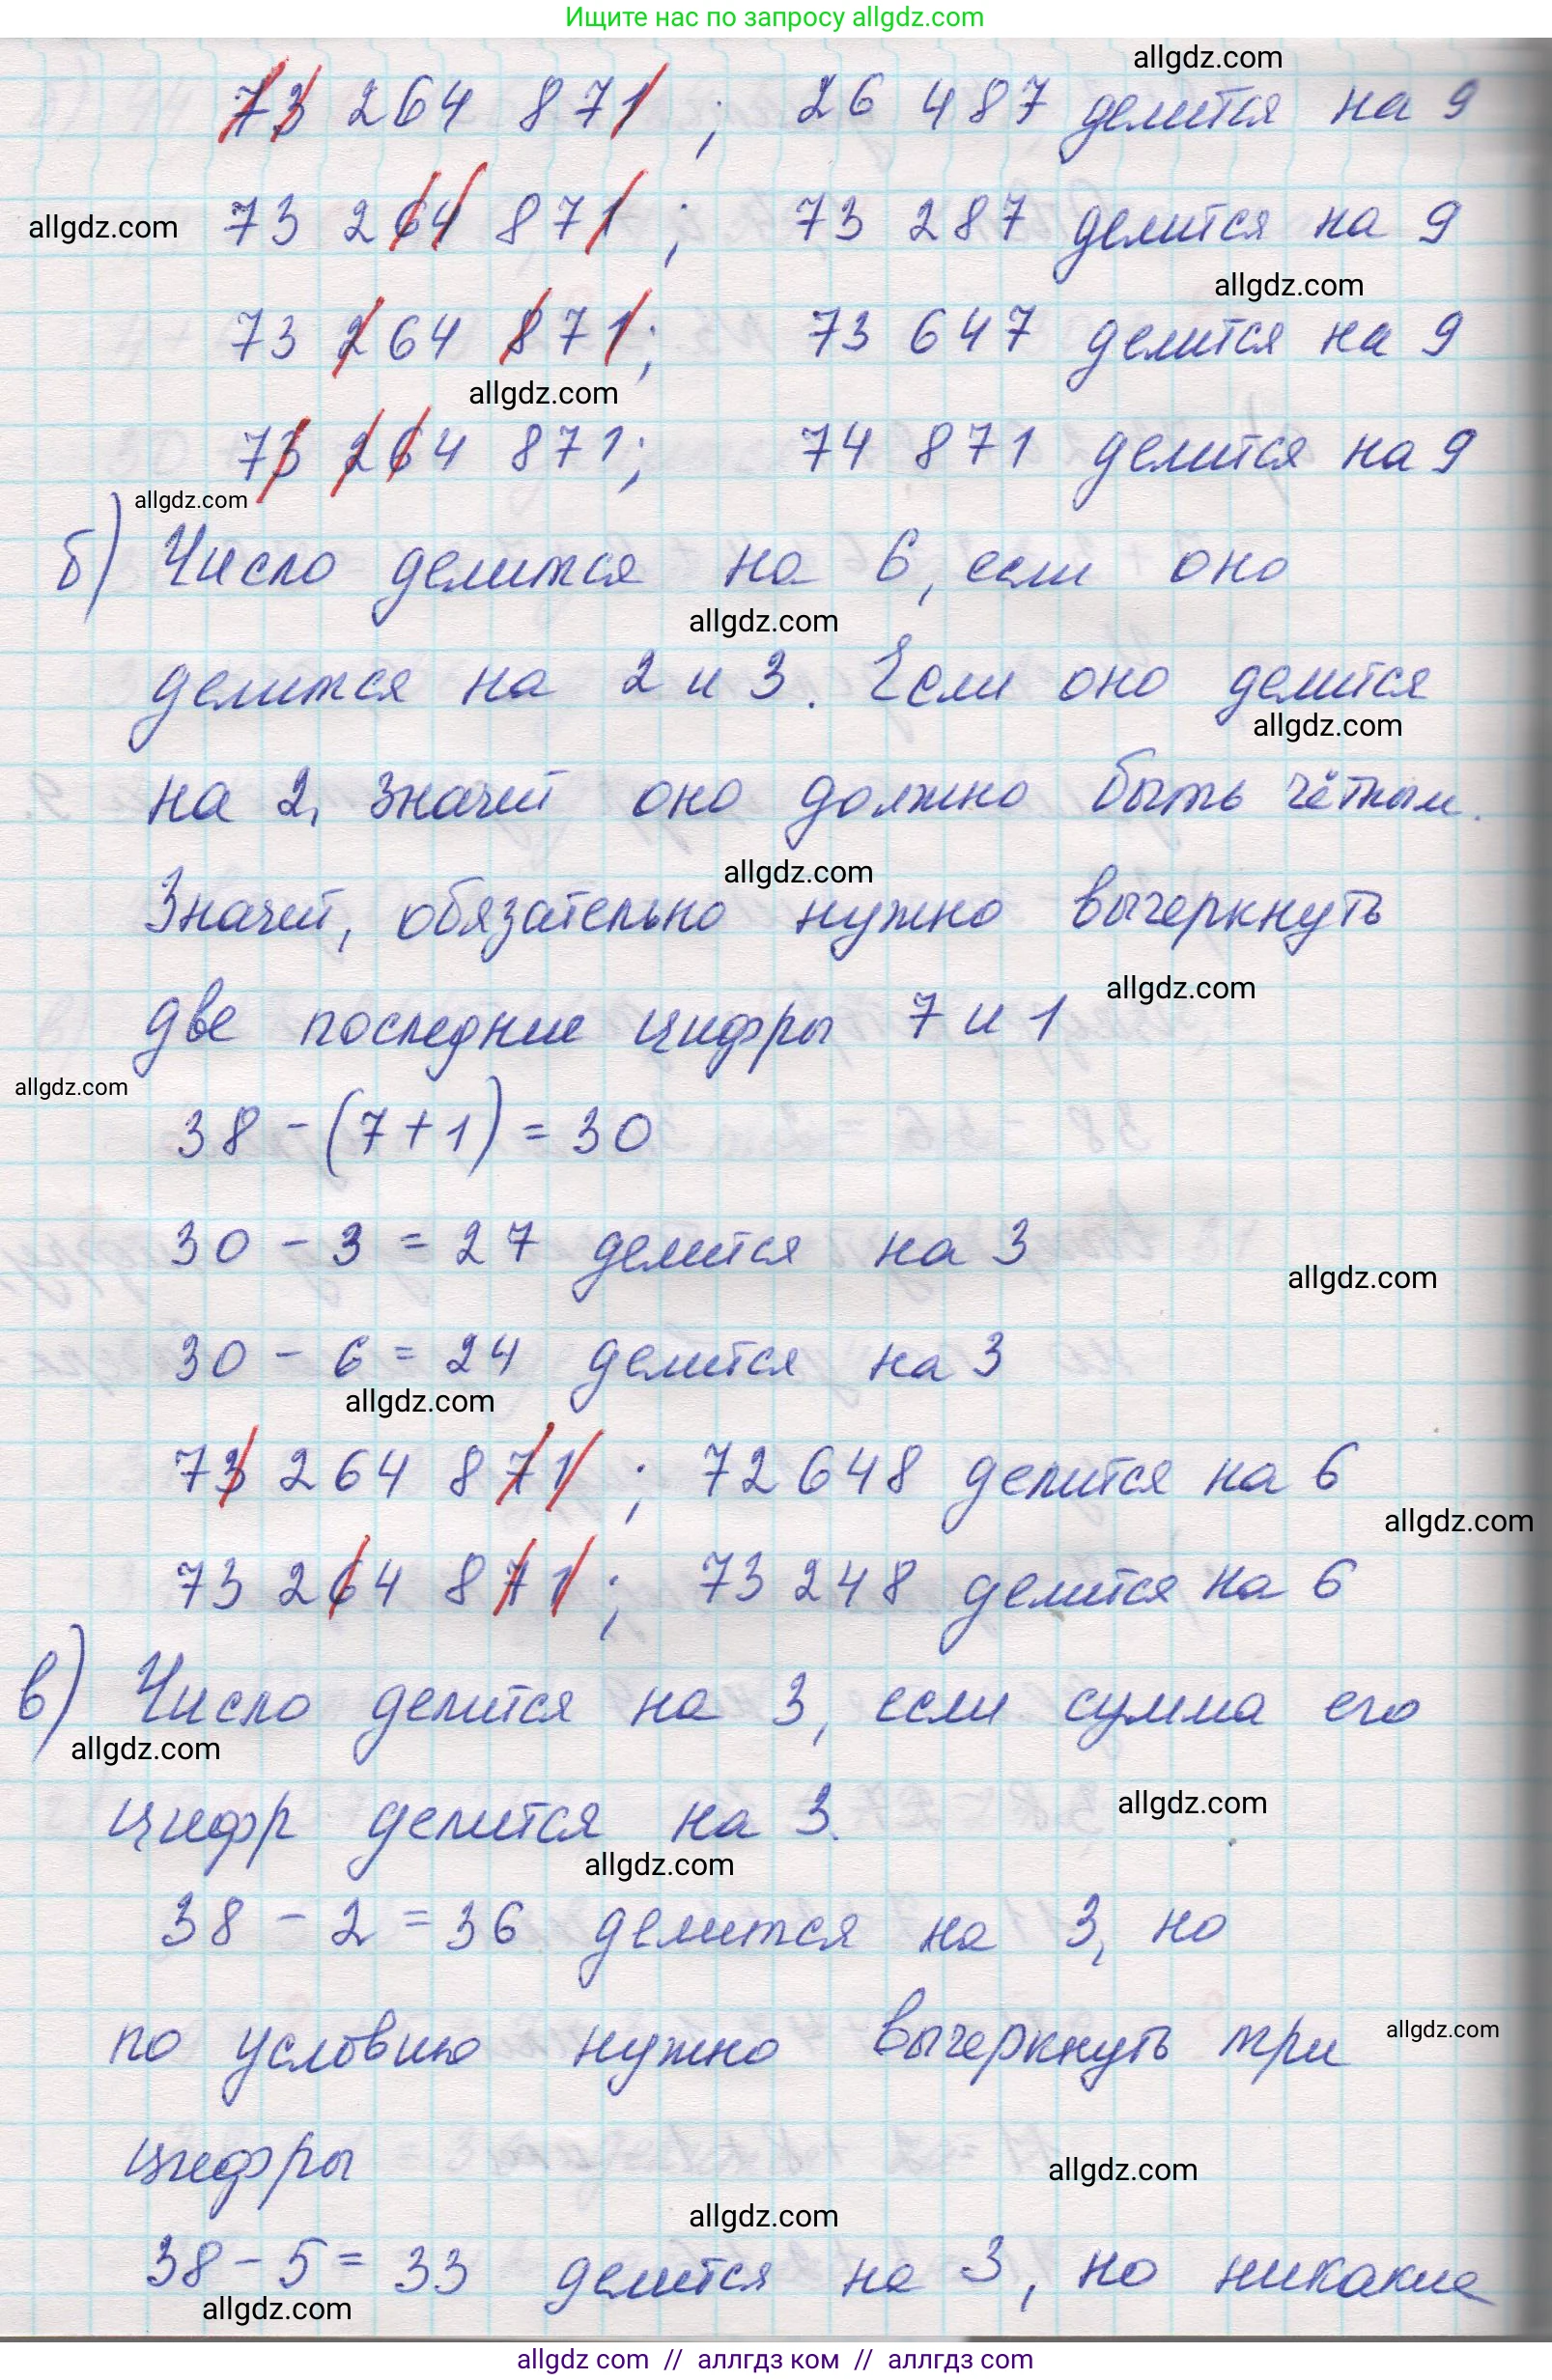 Ищите нас по запросу allgdz.com
allgdz.com
73 264 871 ; 26 487 делится на 9
allgdz.com 73 264 871 ; 73 287 делится на 9
allgdz.com
73 264 871; 73 647 делится на 9
allgdz.com
73 264 871; 74 871 делится на 9
allgdz.com
б) Число делится на 6, если оно
allgdz.com
делится на 2 и 3. Если оно делится
allgdz.com
на 2, значит оно должно быть чётным.
allgdz.com
Значит, обязательно нужно вычеркнуть
две последние цифры 7 и 1 allgdz.com
allgdz.com
38 - (7+1) = 30
30 - 3 = 27 делится на 3
allgdz.com
30 - 6 = 24 делится на 3
allgdz.com
73 264 871 ; 72 648 делится на 6
allgdz.com
73 264 871 ; 73 248 делится на 6
в) Число делится на 3, если сумма его
allgdz.com
allgdz.com
цифр делится на 3.
allgdz.com
38 - 2 = 36 делится на 3, но
по условию нужно вычеркнуть три allgdz.com
цифры
allgdz.com
allgdz.com
38 - 5 = 33 делится на 3, но никакие
allgdz.com
allgdz com // аллгдз ком // аллгдз com